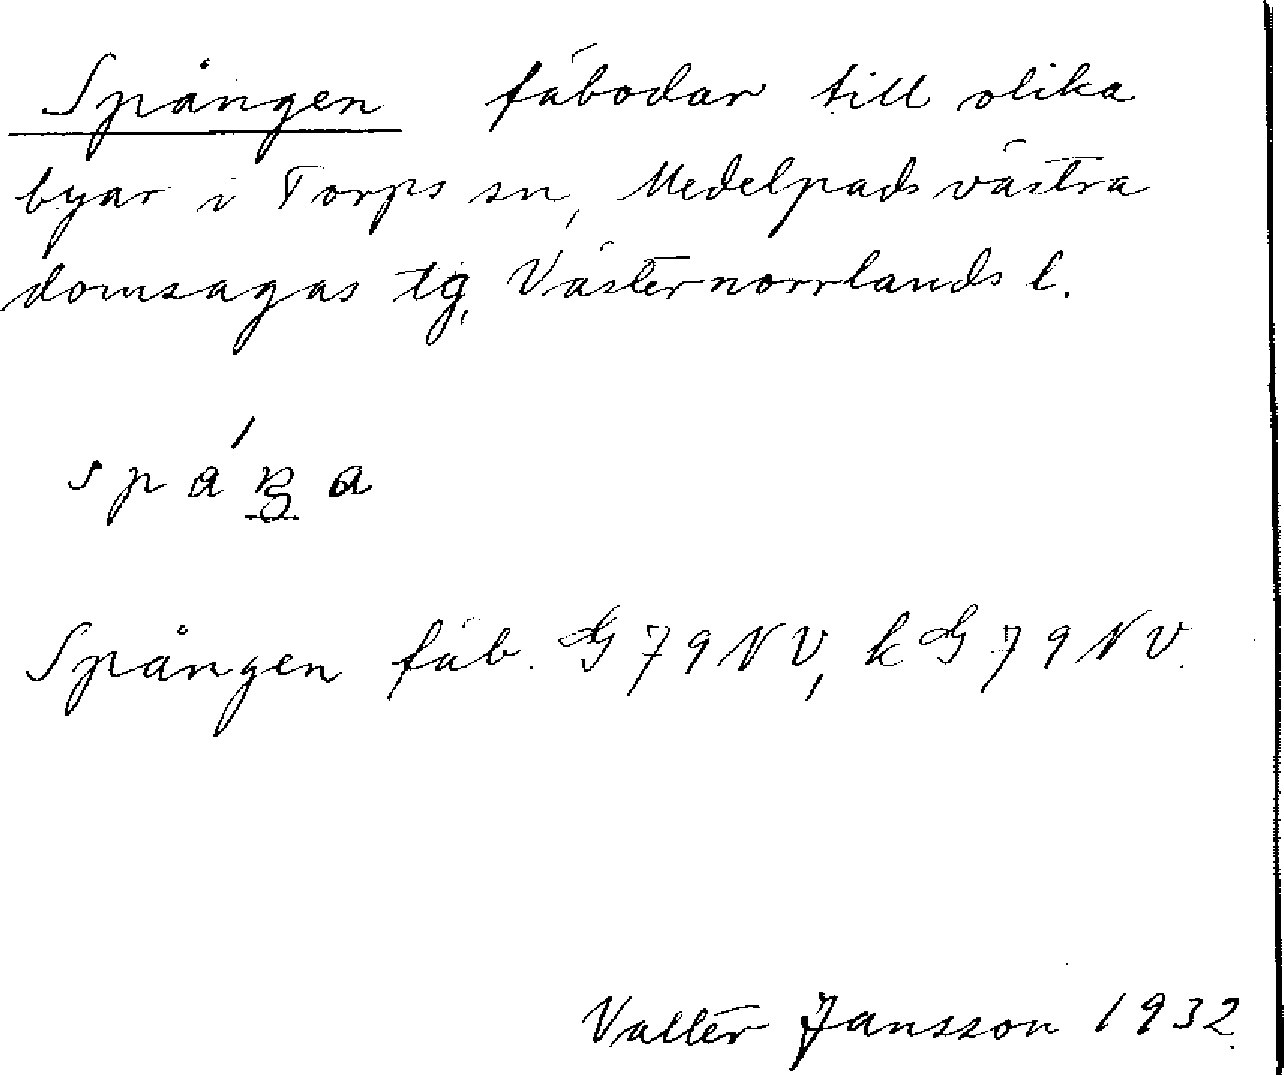 Spången fäbodar till olika
byar i Torps sn, Medelpads västra
domsagas tg, Västernorrlands l.
Spången fäb. G79NV, kG79NV.
Valter Jansson 1932.